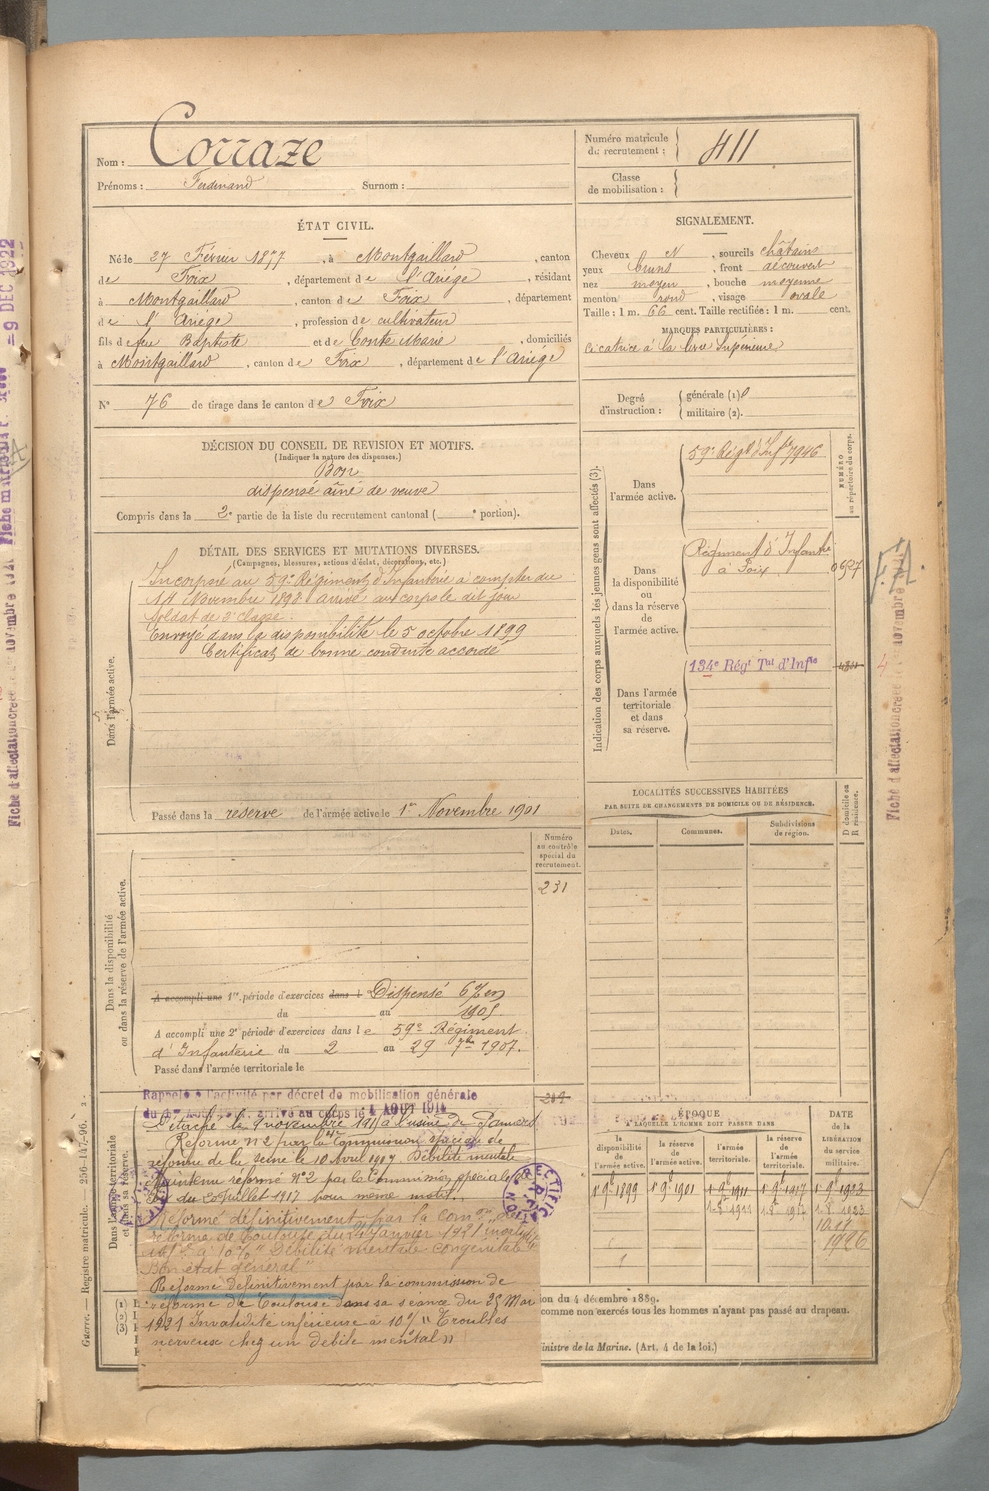 Nom : Corraze
Prénoms : Ferdinand Surnom :
Numéro matricule du recrutement : 411
Classe de mobilisation :
ÉTAT CIVIL.
Né le 27 Février 1877, à Montgaillard, canton
de Foix, département de l'Ariége, résidant
à Montgaillard, canton de Foix, département
de l'Ariége, profession de cultivateur
fils de feu Baptiste et de Conte Marie, domiciliés
à Montgaillard, canton de Foix, département de l'Ariége
N° 76 de tirage dans le canton de Foix
SIGNALEMENT.
Cheveux N, sourcils châtains
yeux bruns, front découvert
nez moyen, bouche moyenne
menton rond, visage ovale
Taille : 1 m. 66 cent. Taille rectifiée : 1 m. cent.
MARQUES PARTICULIÈRES :
cicatrice à la lèvre Supérieure
Degré d'instruction : générale (1)
militaire (2).
DÉCISION DU CONSEIL DE REVISION ET MOTIFS.
(Indiquer la nature des dispenses.)
Bon
dispensé aîné de veuve
Compris dans la 2e partie de la liste du recrutement cantonal ( e portion).
DÉTAIL DES SERVICES ET MUTATIONS DIVERSES.
(Campagnes, blessures, actions d'éclat, décorations, etc.)
Dans l'armée active.
Incorporé au 59e Régiment d'Infanterie à compter du
14 Novembre 1898 arrivé au corps le dit jour
soldat de 2e classe.
Envoyé dans la disponibilité le 5 octobre 1899
Certificat de bonne conduite accordé
Passé dans la réserve de l'armée active le 1er Novembre 1901
Indication des corps auxquels les jeunes gens sont affectés (3).
NUMÉRO au répertoire du corps.
Dans l'armée active.
59e Régt d'Infie 7946
Dans la disponibilité ou dans la réserve de l'armée active.
Régiment d'Infanterie
à Foix
0637
Dans l'armée territoriale et dans sa réserve.
134e Régt Tal d'Infie
F.A.
LOCALITÉS SUCCESSIVES HABITÉES
PAR SUITE DE CHANGEMENTS DE DOMICILE OU DE RÉSIDENCE.
D domicile ou R résidence.
Dates. Communes. Subdivisions de région.
Numéro au contrôle spécial du recrutement.
231
Dans la disponibilité ou dans la réserve de l'armée active.
A accompli une 1re période d'exercices dans l Dispensé
du au 1905
A accompli une 2e période d'exercices dans le 59e Régiment
d'Infanterie du 2 au 29 7bre 1907.
Passé dans l'armée territoriale le
Dans l'armée territoriale et dans sa réserve.
Rappelé à l'activité par décret de mobilisation générale
arrivé au corps le 4 AOUT 1914
Détaché le 9 novembre 1915 à l'usine de Pamiers
Réformé n°2 par la Commission spéciale de
réforme de la Seine le 10 Avril 1917 Débilité mentale
Maintenu réformé n°2 par la Commission spéciale de
du 20 juillet 1917 pour même motif.
Réformé définitivement par la comon de
réforme de Toulouse du janvier 1921 invalidité
inf. à 10% "Débilité mentale congénitale"
Bon état général"
Réformé Définitivement par la commission de
réforme de Toulouse dans sa séance du 25 Mai
1921 Invalidité inférieure à 10% "Troubles
nerveux chez un débile mental"
ÉPOQUE
A LAQUELLE L'HOMME DOIT PASSER DANS
DATE DE LA LIBÉRATION du service militaire.
la disponibilité de l'armée active.
la réserve de l'armée active.
l'armée territoriale.
la réserve de l'armée territoriale.
1er 9bre 1899 1er 9bre 1901 1er 9bre 1911 1er 9bre 1917 1er 9bre 1923
1926
ion du 4 décembre 1889.
comme non exercés tous les hommes n'ayant pas passé au drapeau.
inistre de la Marine. (Art. 4 de la loi.)
(1)
(2)
(3)
Guerre. — Registre matricule. — 256-147-96.
= 9 DEC 1922